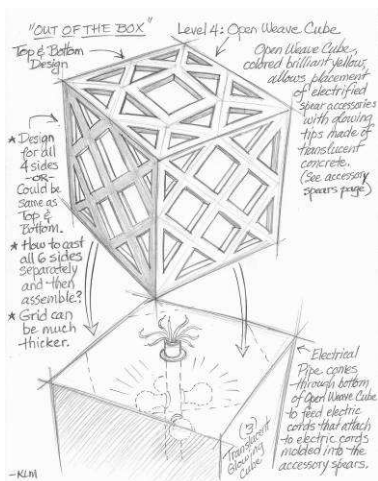 "OUT OF THE BOX"
Level 4: Open Weave Cube
Top & Bottom
Design
Open Weave Cube,
colored brilliant yellow,
allows placement
of electrified
spear accessories
with glowing
tips made of
translucent
concrete.
(See accessory
spears page)
★ Design
for all
4 sides
-OR-
Could be
same as
Top &
Bottom.
★ How to cast
all 6 sides
separately
and then
assemble?
★ Grid can
be much
thicker.
Electrical
Pipe comes
through bottom
of Open Weave Cube
to feed electric
cords that attach
to electric cords
molded into the
accessory spears.
(3)
Translucent
Glowing
Cube
-KLM